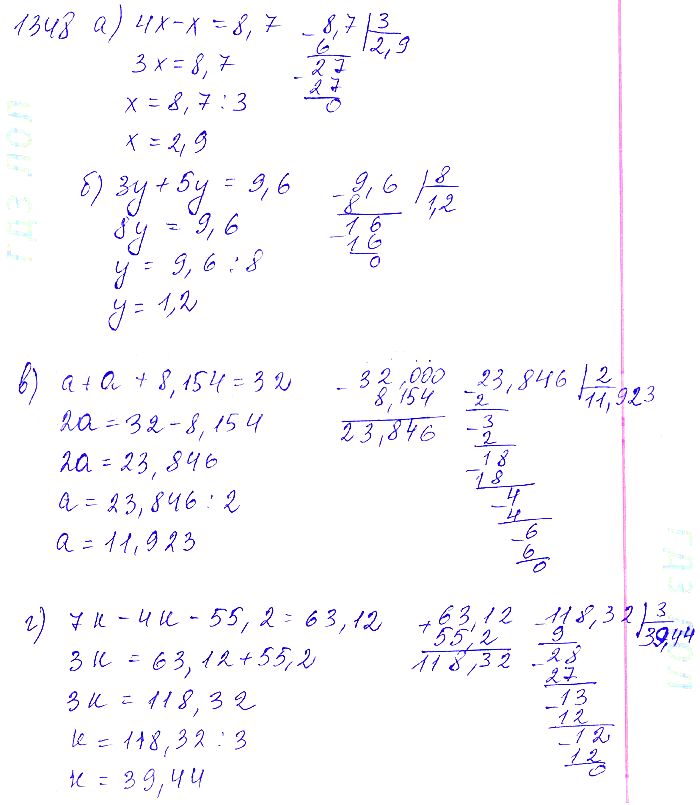 1348 а) 4x-x=8,7
3x=8,7
x=8,7:3
x=2,9
-8,7 | 3
6 2,9
-27
27
0
б) 3y+5y=9,6
8y=9,6
y=9,6:8
y=1,2
-9,6 | 8
8 1,2
-16
16
0
в) a+a+8,154=32
2a=32-8,154
2a=23,846
a=23,846:2
a=11,923
-32,000
8,154
23,846
-23,846 | 2
2 11,923
-3
2
-18
18
-4
4
-6
6
0
г) 7к-4к-55,2=63,12
3к=63,12+55,2
3к=118,32
к=118,32:3
к=39,44
+63,12
55,2
118,32
-118,32 | 3
9 39,44
-28
27
-13
12
-12
12
0